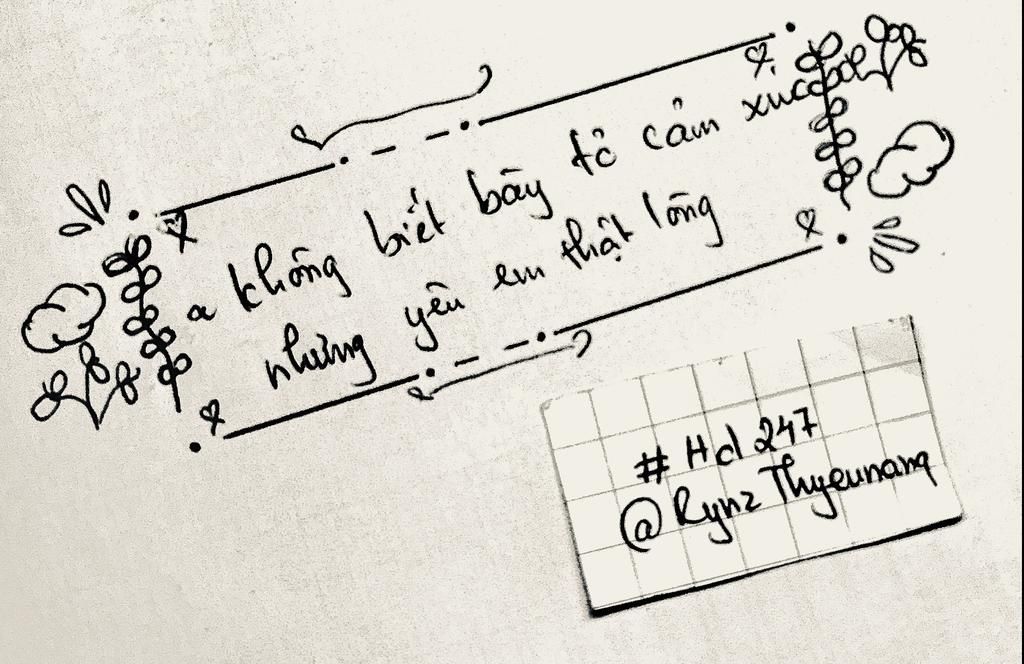 a không biết bày tỏ cảm xúc
nhưng yêu em thật lòng
# Hd 247
@ Rynz Thyeunang